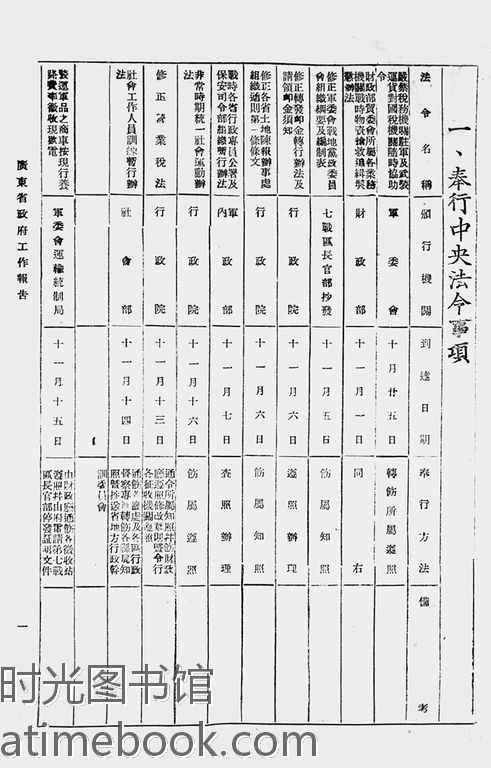 一、奉行中央法令事項
法令名稱
頒行機關
到達日期
奉行方法
備考
嚴禁稅務機關駐軍及武裝
運貨對國稅機關隨時協助
令
軍委會
十月廿五日
轉飭所屬遵照
財政部貿委會所屬各業務
機關戰時物資搶救通緝製
懲辦法
財政部
十一月一日
同右
修正軍委會戰地黨政委員
會組織概要及編制表
七戰區長官部抄發
十一月五日
飭屬知照
修正轉發印金轉行辦法及
請領印金須知
行政院
十一月六日
遵照辦理
修正各省土地陳報辦事處
組織通則第一條條文
行政院
十一月六日
飭屬知照
戰時各省行政專員公署及
保安司令部組織暫行辦法
軍政部
內
十一月七日
查照辦理
非常時期統一社會運動辦
法
行政院
十一月十六日
飭屬遵照
修正營業稅法
行政院
十一月十三日
通令所屬知照幷飭財政
廳遵照修改章則暨令行
各征收機關遵照
社會工作人員訓練暫行辦
法
社會部
十一月十四日
訓委員會
緊運軍品之商車按現行養
路費率徵收現款電
軍委會運輸統制局
十一月十五日
由財政廳通飭各徵收站
遵照幷由府電請第七戰
區長官部停發証明文件
廣東省政府工作報告
一
时光图书馆
atimebook.com